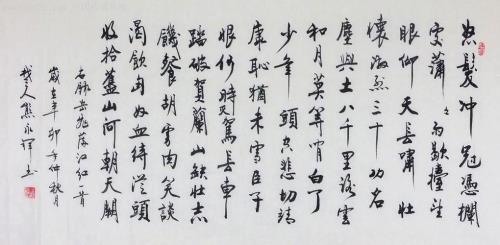 怒髮冲冠憑欄
處瀟々雨歇擡望
眼仰天長嘯壯
懷激烈三十功名
塵與土八千里路雲
和月莫等閒白了
少年頭空悲切靖
康恥猶未雪臣子
恨何時滅駕長車
踏破賀蘭山缺壯志
饑餐胡虜肉笑談
渴飲匈奴血待從頭
收拾舊山河朝天闕
右錄岳飛滿江紅一首
歲在辛卯年仲秋月
人熊永書